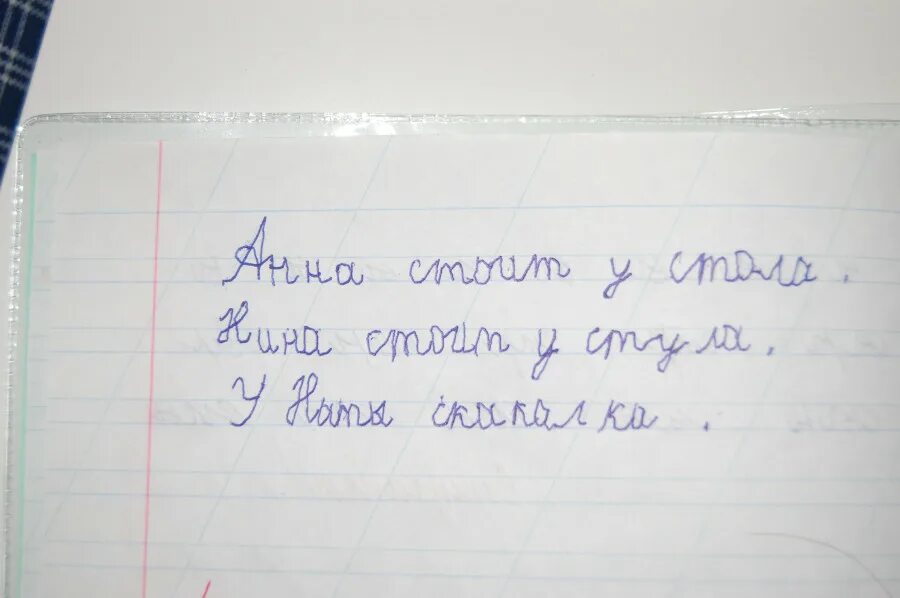 Анна стоит у стола.
Нина стоит у стула.
У Наты скакалка.